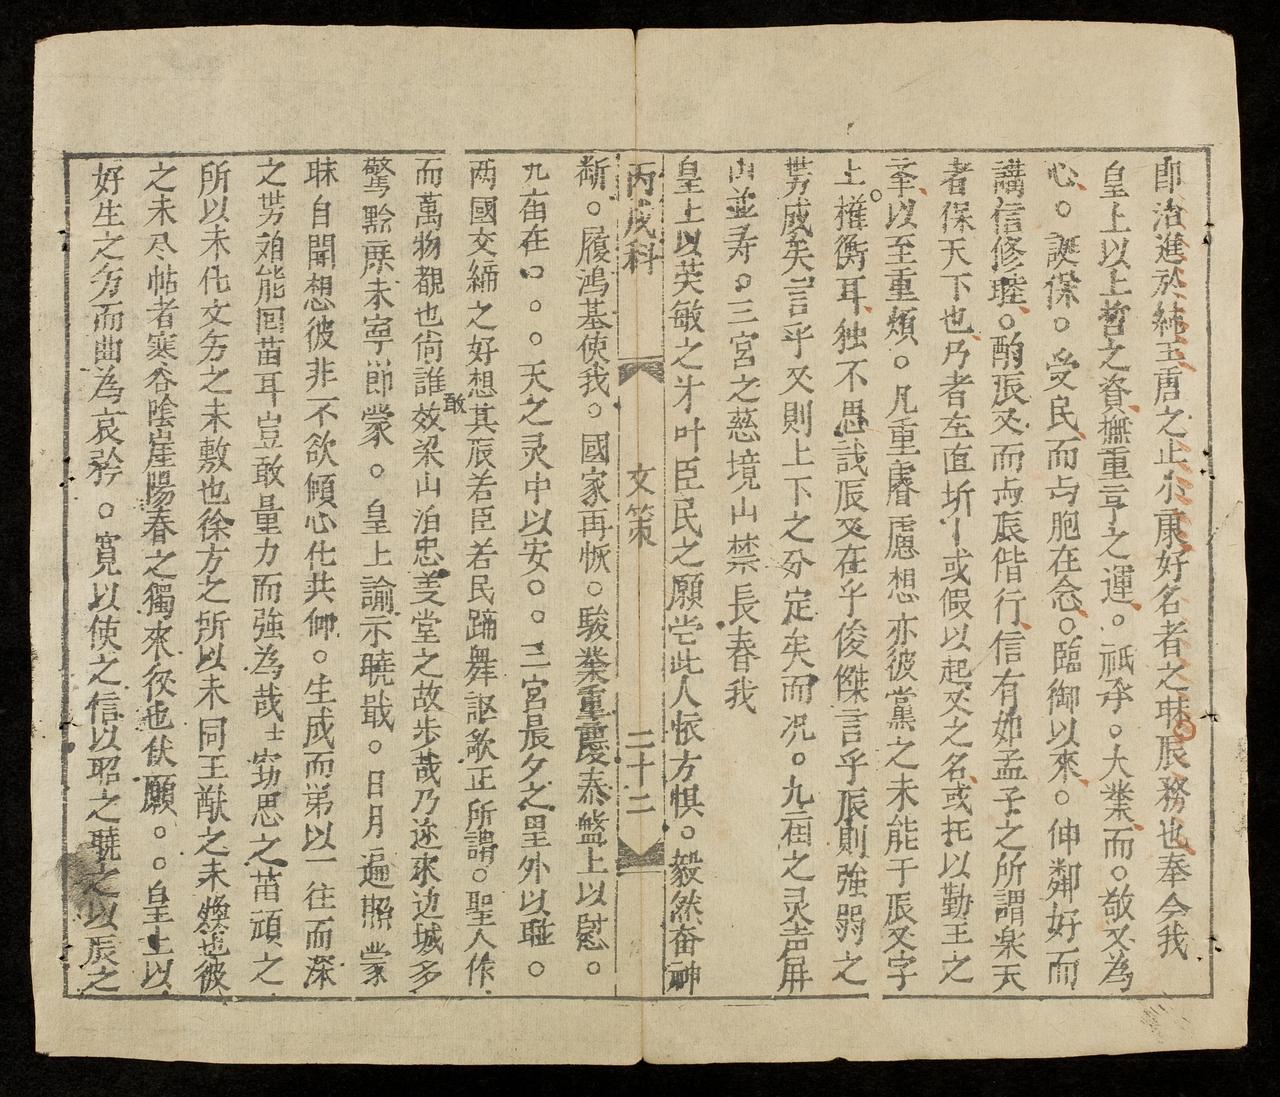 即治進於純王唐之止小康好名者之耿辰務也奉今我
皇上以上哲之資撫重亨之運。祇承。大業而。敬又為
心。誕保。受民而与胞在念。臨御以來。伸鄰好而
講信修睦。酌辰又而与辰偕行信有如孟子之所謂楽天
者保天下也乃者左直圻或假以起又之名或托以勤王之
羣以至重煩。凡重睿慮想亦彼黨之未能于辰又字
上權衡耳独不思哉辰又在乎俊傑言乎辰則強弱之
勢咸矣言乎又則上下之分定矣而况。九庙之灵声屏
山並寿。三宮之慈境山禁長春我
皇上以英敏之才叶臣民之願尝此人依方惧。毅然奋神
断。履鴻基使我。國家再恢。駿業重慶泰盤上以慰。
九庙在。。。天之灵中以安。。三宮晨夕之里外以聯。
两國交締之好想其辰若臣若民踊舞謳歌正所謂。聖人作
而萬物覩也尙誰敢效梁山泊忠羙堂之故步哉乃迩來边城多
驚黔庶未寧節蒙。皇上諭示曉戢。日月遍照蒙
昧自聞想彼非不欲傾心化共仰。生成而弟以一往而深
之势难能回苗耳豈敢量力而強為哉士窃思之苗頑之
所以未化文务之未敷也徐方之所以未同王猷之未煥也彼
之未尽帖者寒谷陰崖陽春之獨來後也伏願。。皇上以
好生之务而曲為哀矜。寬以使之信以昭之曉之以辰之
丙戌科
文策
二十二